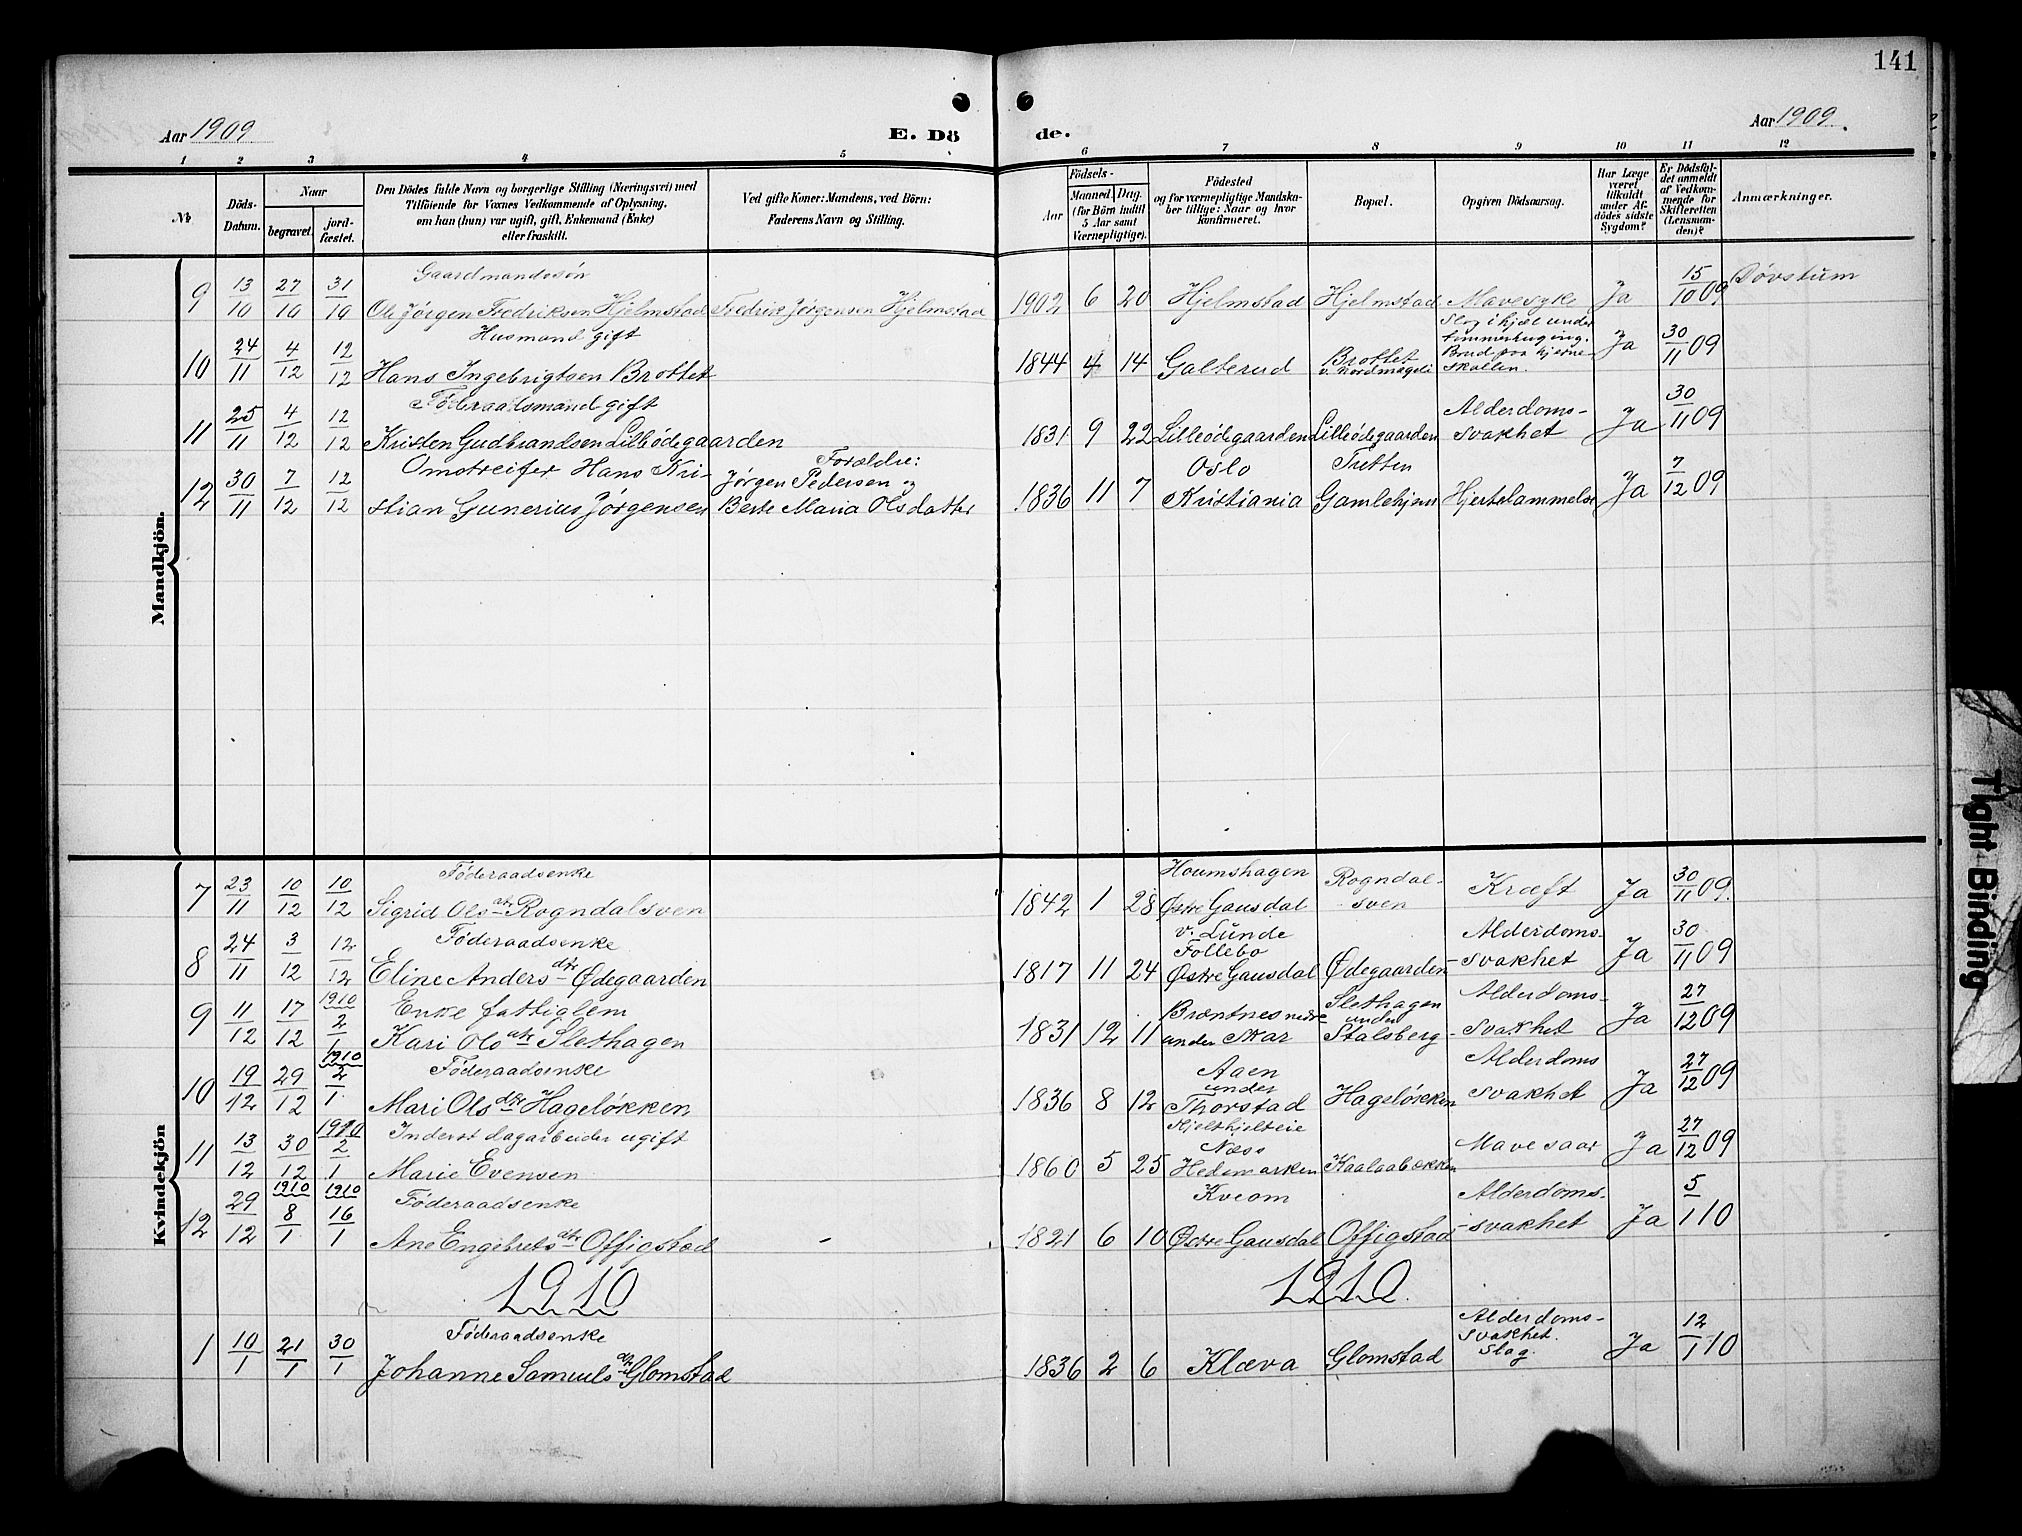 141
Aar 1909
E. Dö
de.
Aar 1909.
1 2 3 4 5 6 7 8 9 10 11 12
No
Döds-Datum.
Naar
begravet.
jord-fæstet.
Den Dödes fulde Navn og borgerlige Stilling (Næringsvei) med
Tilföiende for Voxnes Vedkommende af Oplysning,
om han (hun) var ugift, gift, Enkemand (Enke)
eller fraskilt.
Ved gifte Koner: Mandens, ved Börn:
Faderens Navn og Stilling.
Födsels-
Aar
Maaned. Dag.
(for Börn indtil
5 Aar samt
Værnepligtige).
Födested
og for værnepligtige Mandska-
ber tillige: Naar og hvor
konfirmeret.
Bopæl.
Opgiven Dödsaarsag.
Har Læge
været
tilkaldt
under Af-
dödes sidste
Sygdom?
Er Dödsfal-
det anmeldt
af Vedkom-
mende for
Skifteretten
(Lensman-
den)?
Anmærkninger.
Mandkjön.
Gaardmandssøn
9 13/10 27/10 31/10 Ole Jørgen Fredriksen Hjelmstad Fredrik Jørgensen Hjelmstad 1902 6 20 Hjelmstad Hjelmstad Mavesyke Ja 15/10 09 Døvstum
Husmand gift
Slog ihjel under
10 24/11 4/12 12/12 Hans Ingebrigtsen Brottet 1844 4 14 Galterud Brottet
Brud paa hjerne-
skallen. Ja 30/11 09
Føderaadsmand gift
Alderdoms-
11 25/11 4/12 12/12 Kristen Gudbrandsen Lilleødegaarden 1831 9 22 Lilleødegaarden Lilleødegaarden svakhet Ja 30/11 09
Omstreifer Hans Kri-
Forældre:
Jørgen Pedersen og
Oslo Tretten
12 30/11 7/12 12/12 stian Gunerius Jørgensen Berte Maria Olsdatter 1836 11 7 Kristiania Gamlehjem Hjertelammelse Ja 7/12 09
Kvindekjön
Føderaadsenke
Rogndal-
7 23/11 10/12 10/12 Sigrid Olsdtr Rogndalsven 1842 1 28 Østre Gausdal sven Kræft Ja 30/11 09.
Føderaadsenke
v. Lunde
Follebo
Alderdoms-
8 24/11 3/12 12/12 Eline Andersdtr Ødegaarden 1817 11 24 Østre Gausdal Ødegaarden svakhet Ja 30/11 09
Enke fattiglem
Slethagen
under
Alderdoms-
9 11/12 17/12 1910 2/1 Kari Olsdtr Slethagen 1831 12 11 under Skar Stalsberg svakhet Ja 27/12 09
Føderaadsenke
Aaen
under
Alderdoms
10 19/12 29/12 1910 2/1 Mari Olsdtr Hageløkken 1836 8 12 Thorstad Hageløkken svakhet Ja 27/12 09
Inderst dagarbeider ugift
Næss
11 13/12 30/12 1910 2/1 Marie Evensen 1860 5 25 Hedemarken Kaalaabækken Mavesaar Ja 27/12 09
Føderaadsenke
Kveom
Alderdoms-
12 29/12 1910 8/1 1910 16/1 Ane Engebretsdtr Offigstad 1821 6 10 Østre Gausdal Offigstad svakhet Ja 5/1 10
1910 1910.
Føderaadsenke
Alderdoms-
svakhet.
Slag.
1 10/1 21/1 30/1 Johanne Samuelsdtr Glomstad 1836 2 6 Klæva Glomstad Ja 12/1 10
Tight Binding